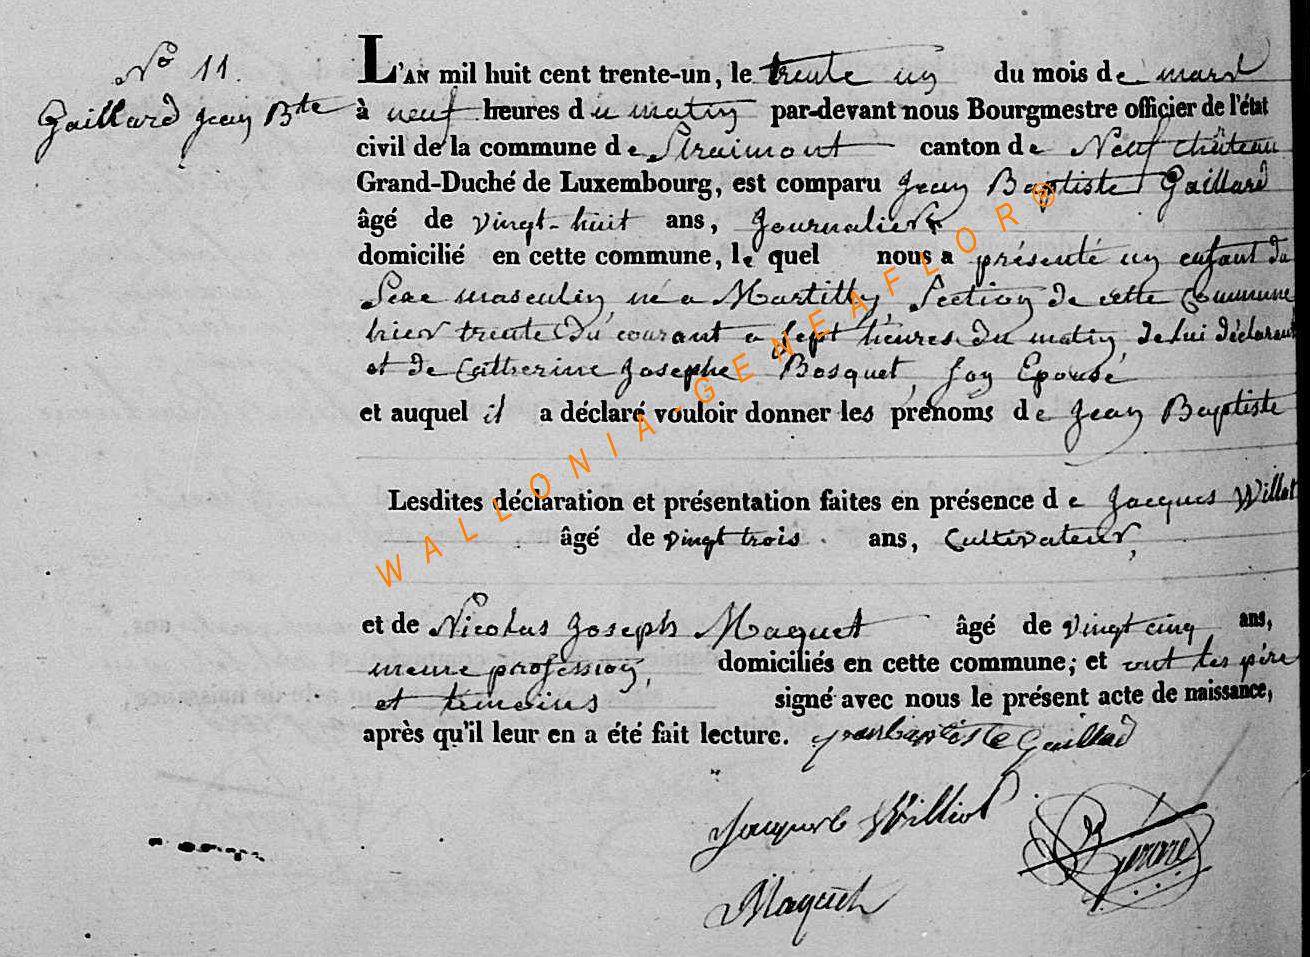 N° 11.
Gaillard Jean Bte
L'AN mil huit cent trente-un, le trente un du mois de mars
à neuf heures du matin par-devant nous Bourgmestre officier de l'état
civil de la commune de Straimont canton de Neufchâteau
Grand-Duché de Luxembourg, est comparu Jean Baptiste Gaillard
âgé de vingt-huit ans, Journalier
domicilié en cette commune, le quel nous a présenté un enfant du
Sexe masculin, né a Martilly, Section de cette Commune
hier trente du courant a sept heures du matin, de lui déclarant
et de Catherine Josephe Bosquet, son Epouse
et auquel il a déclaré vouloir donner les prénoms de Jean Baptiste
Lesdites déclaration et présentation faites en présence de Jacques Willot
âgé de vingt trois ans, Cultivateur,
et de Nicolas Joseph Maquet âgé de vingt cinq ans,
meme profession, domiciliés en cette commune; et ont les père
et témoins signé avec nous le présent acte de naissance,
après qu'il leur en a été fait lecture. Jean baptiste Gaillard
Jacques Williot
Maquet
WALLONIA-GENEAFLOR®